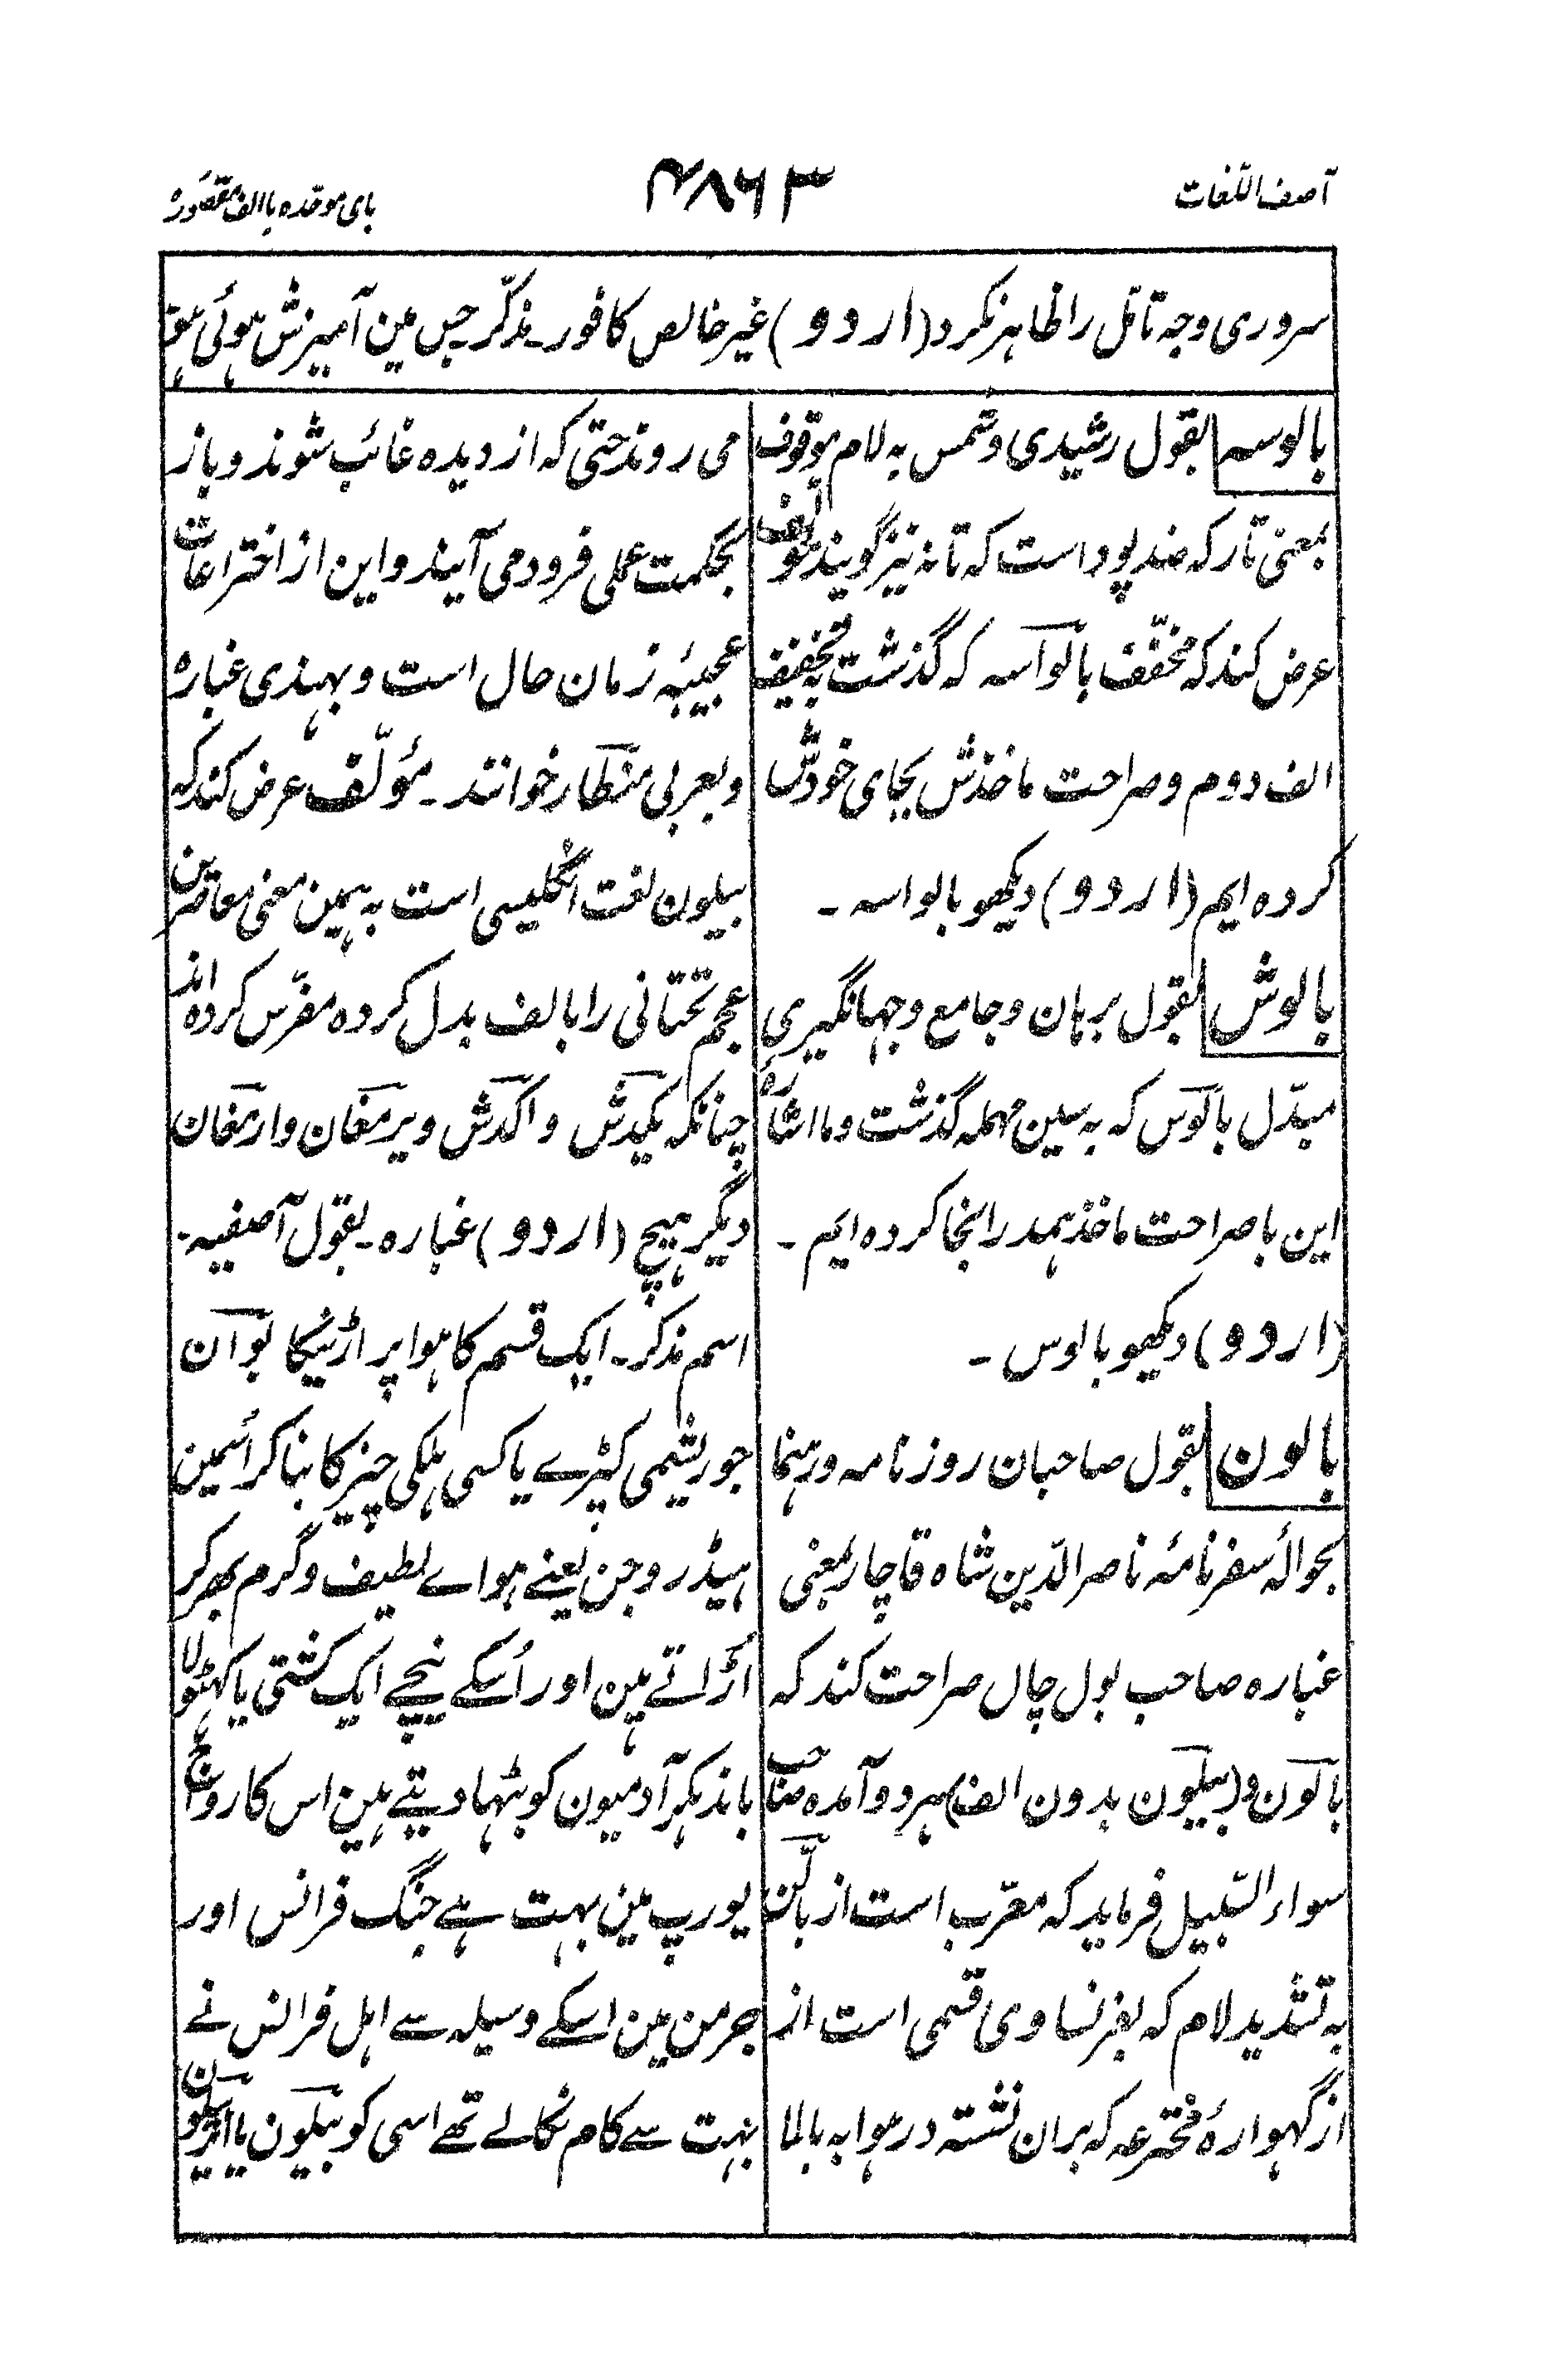 آصف اللّغات
۴۸۶۳
بای موحّده با الف مقصوره
سروری وجه تامّل را ظاهر نکرد (اردو) غیر خالص کافور۔ مذکّر۔ جس مین آمیزش ہوئی ہو
بالوسه بقول رشیدی و شمس به لام موقوف
بمعنی تار که ضد پود است که تانه نیز گویند مؤلّف
عرض کند که مخفّف بالواسه که گذشت به تخفیف
الف دوم و صراحت ماخذش بجای خودش
کرده ایم (اردو) دیکھو بالواسه ۔
بالوش بقول برهان و جامع و جهانگیری
مبدّل بالوس که به سین مهمله گذشت و ما اشارهٔ
این با صراحت ماخذ همدرانجا کرده ایم ۔
(اردو) دیکھو بالوس ۔
بالون بقول صاحبان روزنامه و رهنما
بحوالهٔ سفرنامهٔ ناصر الدّین شاه قاچار بمعنی
غباره صاحب بول چال صراحت کند که
بالون و (بیلون بدون الف) هر دو آمده صاحب
سواء السّبیل فرماید که معرّب است از بالّن
به تشدید لام که بفرنساوی قسمی است از
از گهوارهٔ مخترعه که بران نشسته در هوا به بالا
می روند حتی که از دیده غائب شوند و باز
بحکمت عملی فرود می آیند و این از اختراعات
عجیبهٔ زمان حال است و بهندی غباره
و بعربی منطار خوانند ۔ مؤلّف عرض کند که
بیلون لغت انگلیسی است به همین معنی معاصرین
عجم تحتانی را بالف بدل کرده مفرّس کرده اند
چنانکه یکدش و اکدش و یرمغان و ارمغان
دیگر هیچ (اردو) غباره ۔ بقول آصفیه ۔
اسم مذکر ۔ ایک قسم کا ہوا پر اڑنیکا بو آن
جو ریشمی کپڑے یا کسی ہلکی چیز کا بنا کر اُسمین
ہیڈروجن یعنے ہواے لطیف و گرم بھر کر
اُڑاتے ہین اور اُسکے نیچے ایک کشتی یا کہٹولا
باندہکر آدمیون کو بٹہا دیتے ہین اس کا رواج
یورپ مین بہت ہے جنگ فرانس اور
جرمن مین اسکے وسیلہ سے اہل فرانس نے
بہت سے کام نکالے تھے اسی کو بیلون یا